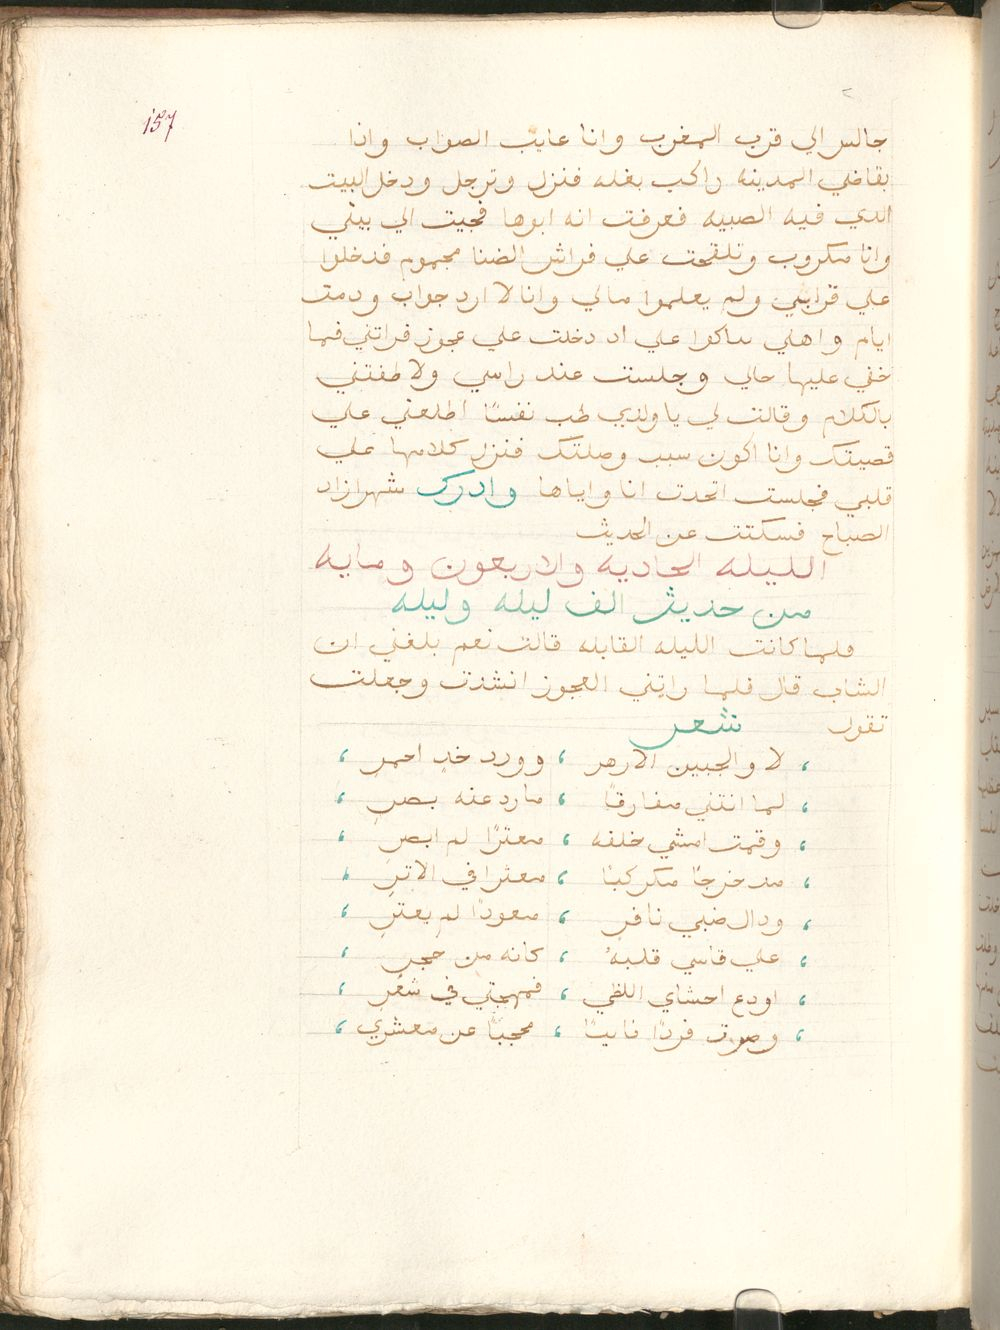 157
جالس الي قرب المغرب وانا غايب الصواب واذا
بقاضي المدينه راكب بغله فنزل وترجل ودخل البيت
الدي فيه الصبيه فعرفت انه ابوها فجيت الي بيتي
وانا مكروب وتلقحت علي فراش الضنا مجموم فدخلوا
علي قرايبي ولم يعلموا مالي وانا لا ارد جواب ودمت
ايام واهلي يباكوا علي اد دخلت علي عجوز فراتني فما
خفي عليها حالي وجلست عند راسي ولاطفتني
بالكلام وقالت لي يا ولدي طب نفسًا اطلعني علي
قصيتك وانا اكون سبب وصلتك فنزل كلامها علي
قلبي فجلست اتحدت انا واياها وادرك شهرازاد
الصباح فسكتت عن الحديث
الليله الحاديه والاربعون ومايه
من حديث الف ليله وليله
فلما كانت الليله القابله قالت نعم بلغني ان
الشاب قال فلما راتني العجوز انشدت وجعلت
تقول شعر
لا والجبين الازهر ، وورد خدٍ احمر ،
لما انتني مفارقًا ، مارد عنه بصرِ ،
وقمت امشي خلفه ، معترًا لم ابصر ،
مدحرجًا مكركبًا ، معترا في الاترِ ،
ودال ضبي نافر ، معودًا لم يعترِ ،
علي قاسي قلبهُ ، كانه من حجر ،
اودع احشاي اللظي ، فمهجتي في سُعُرِ ،
وصرت فردًا فانيًا ، محجبًا عن معشري ،